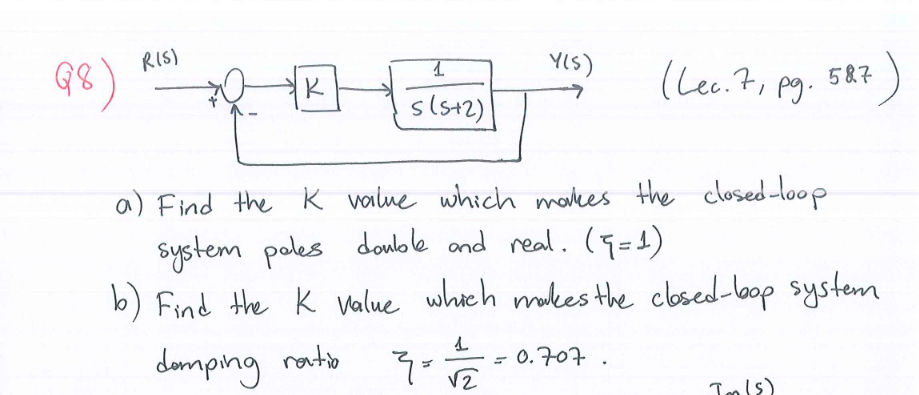 Q8) R(S) + - K 1 / s(s+2) Y(S) (Lec. 7, pg. 587)
a) Find the K value which makes the closed-loop
system poles double and real. (ξ=1)
b) Find the K value which makes the closed-loop system
damping ratio ξ = 1/√2 = 0.707.
Im(s)